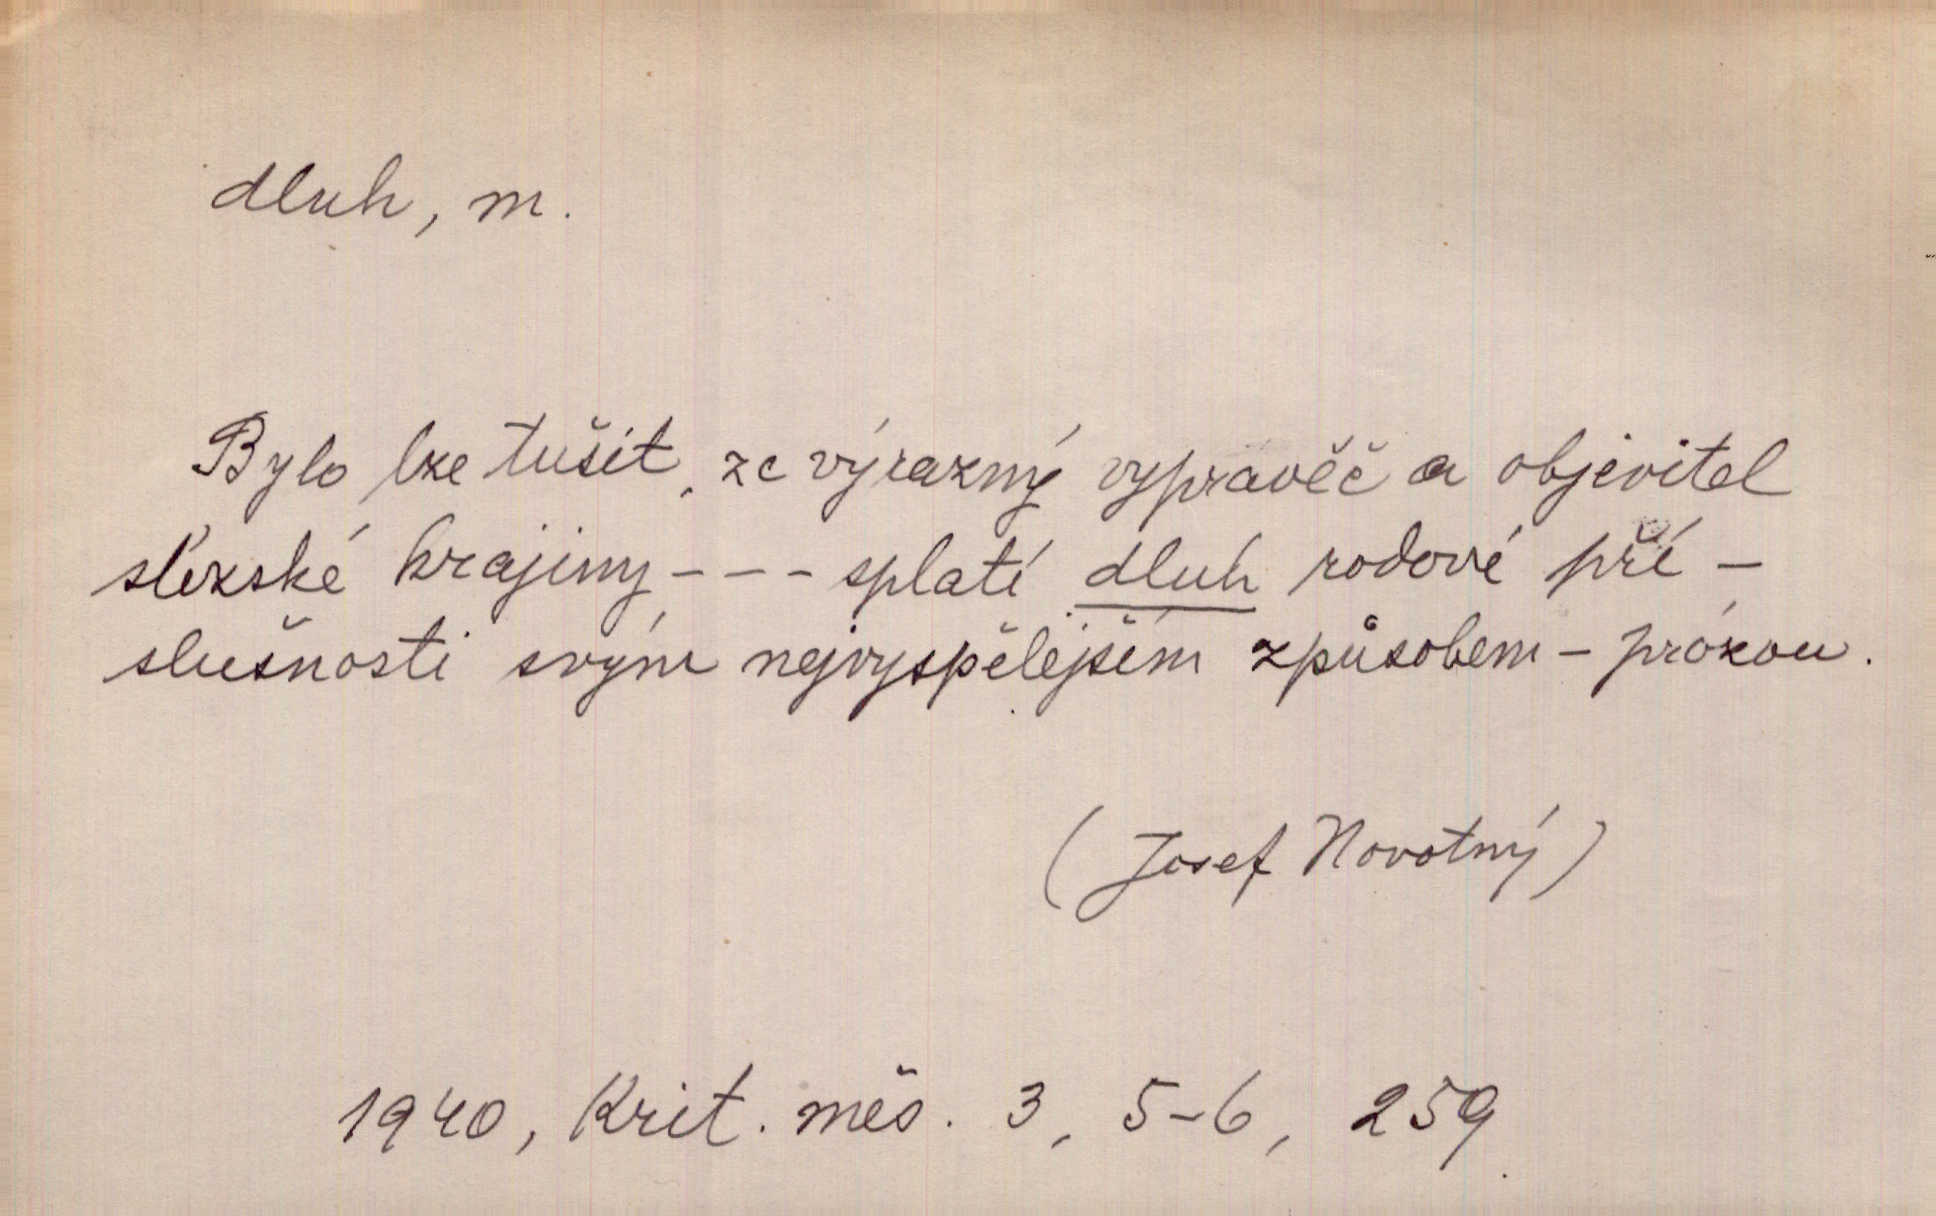 dluh, m.
Bylo lze tušit, že výrazný vypravěč a objevitel
slezské krajiny --- splatí dluh rodové pří-
slušnosti svým nejvyspělejším způsobem - prózou.
(Josef Novotný)
1940, Krit. měs. 3, 5-6, 259